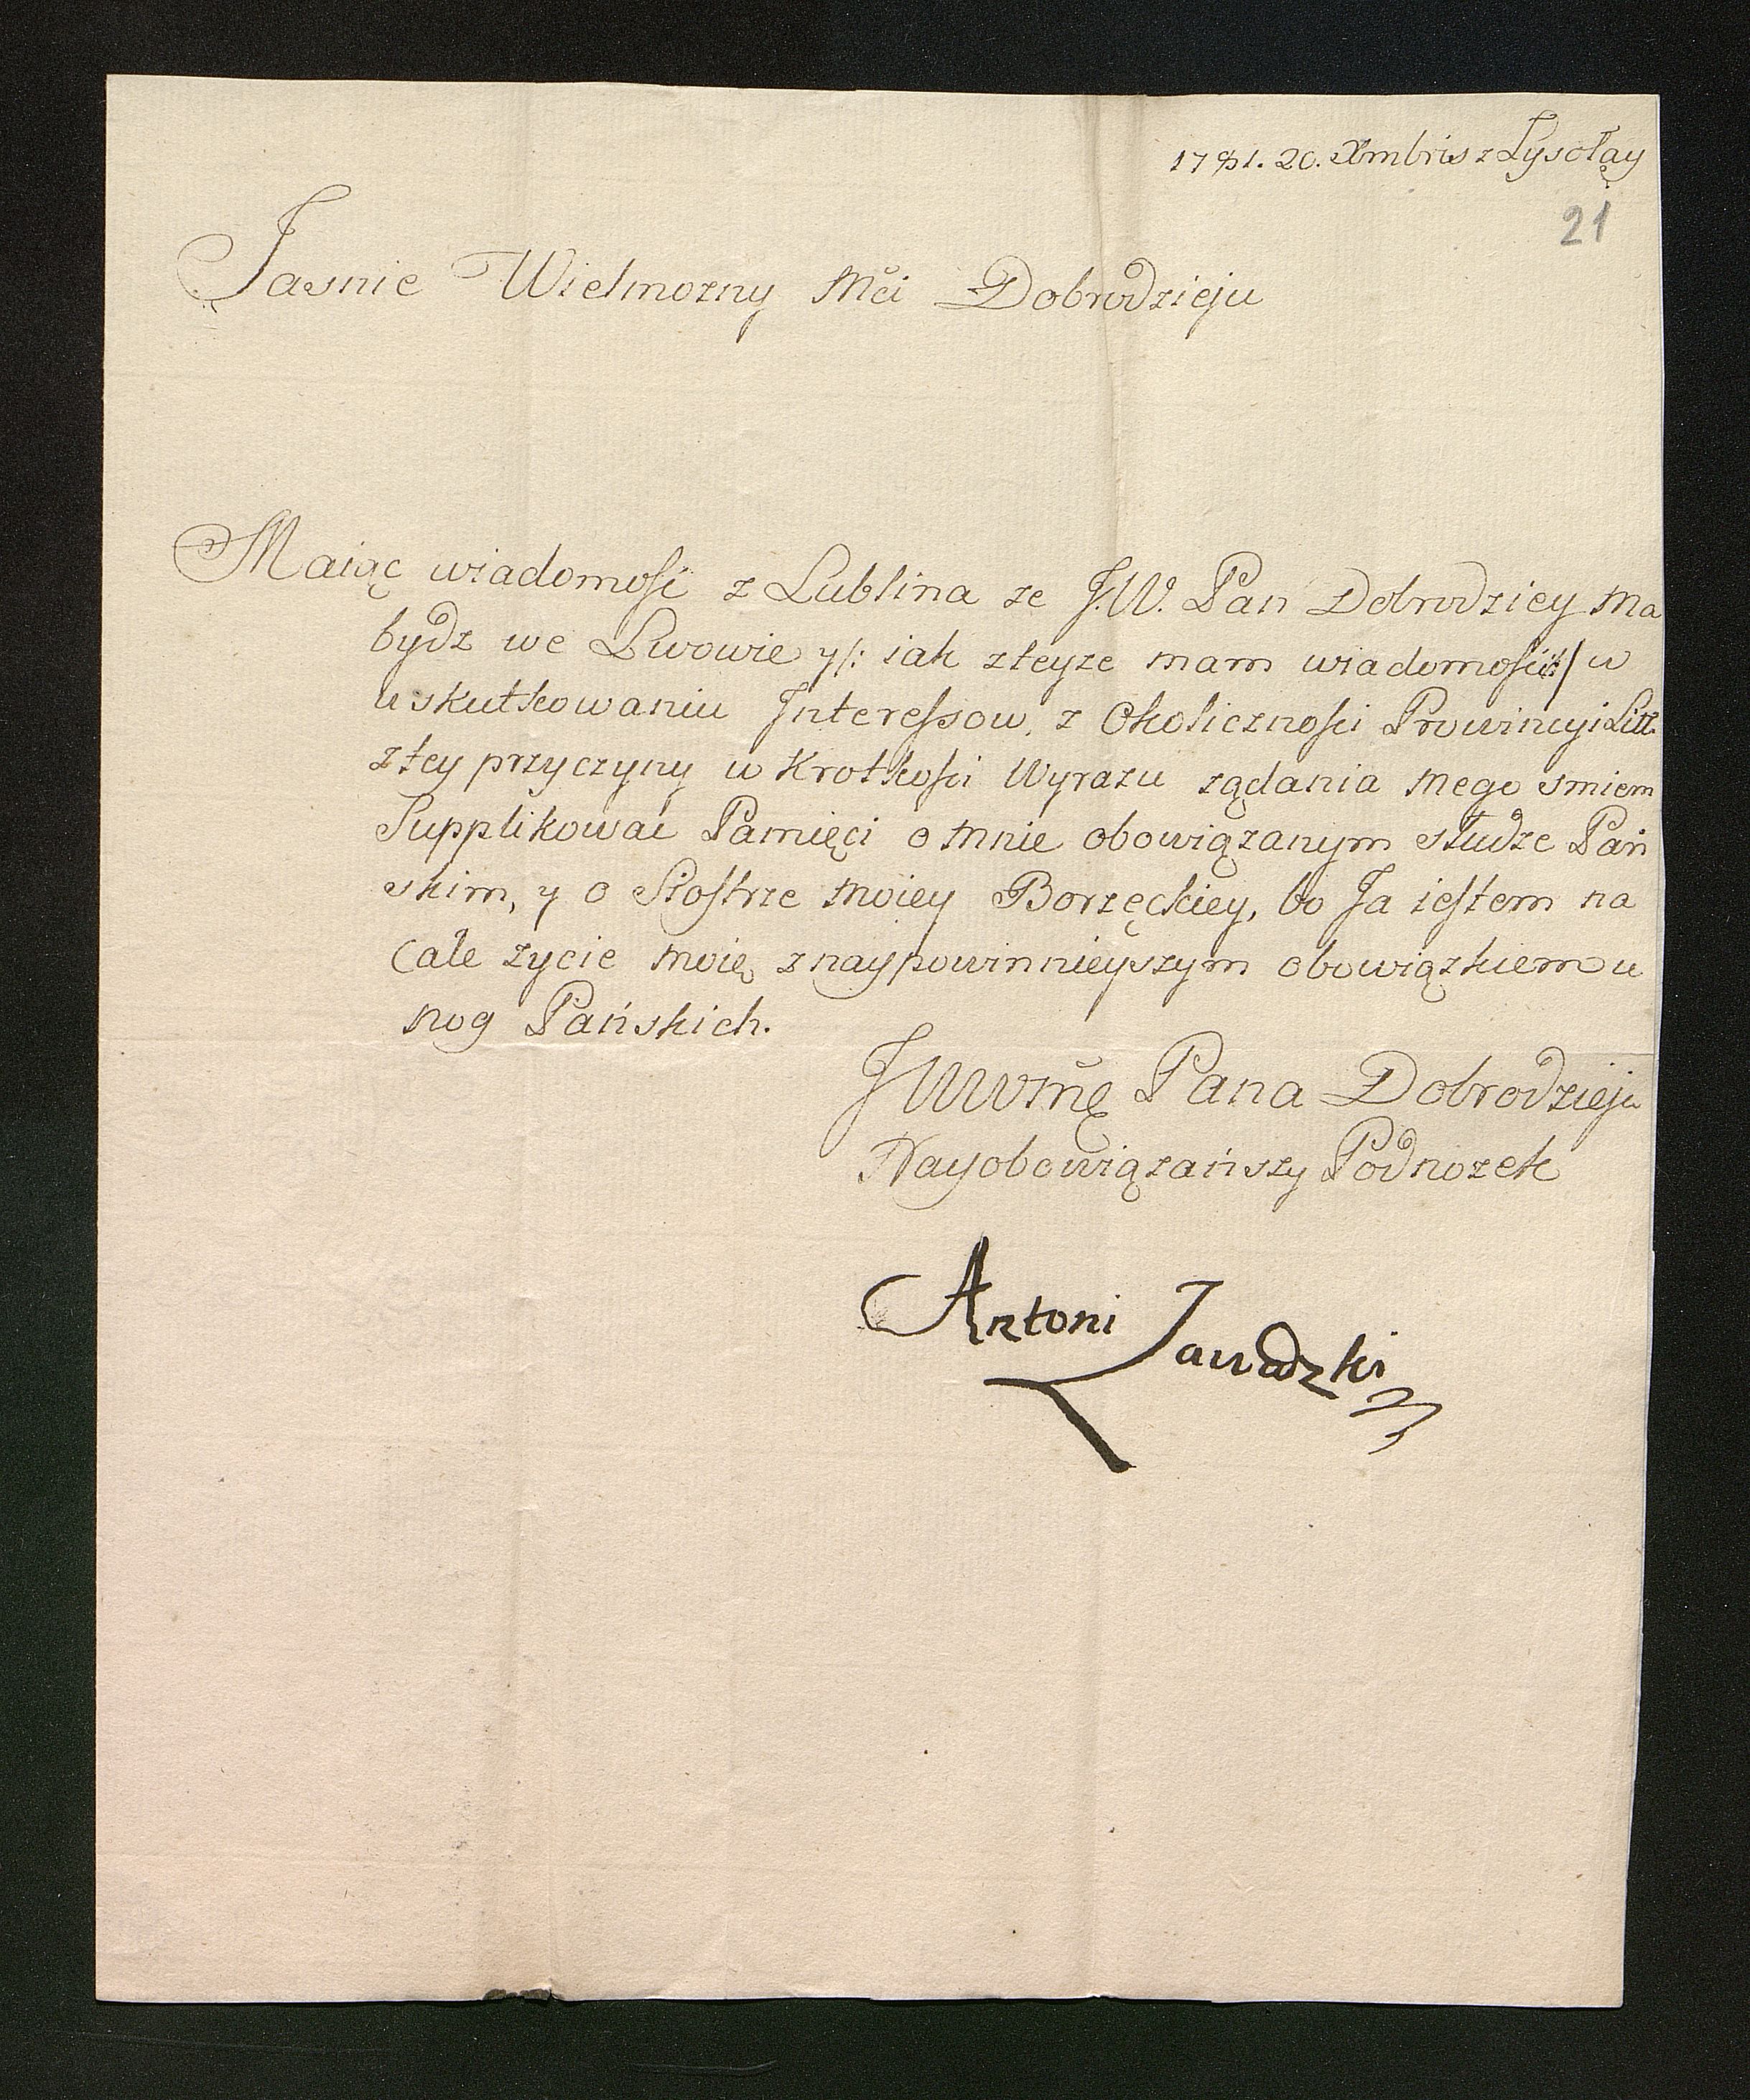 1781. 20. Xmbris z Łysołay
21
Jasnie Wielmozny Mći Dobrodzieju
Maiąc wiadomość z Lublina ze J.W. Pan Dobrodziey ma
bydz we Lwowie y /: iak zteyze mam wiadomości :/ w
uskutkowaniu Interessow, z Okoliczności Prowincyi Litt.
ztey przyczyny w Krotkości Wyrazu ządania mego smiem
Supplikować Pamięci o mnie obowiązanym słudze Pań
skim, y o Siostrze moiey Borzęckiey, bo Ja iestem na
Całe zycie moię z naypowinnieyszym obowiązkiem u
nog Pańskich.
Pana Dobrodzieju
Nayobowiązańszy Podnozek
Antoni Zawadzki